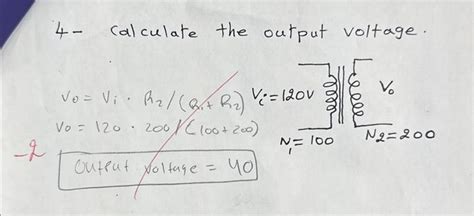 4- Calculate the output voltage.
Vo = Vi · R2/(R1+R2)
Vo = 120 · 200/(100+200)
-2
Output voltage = 40
Vi = 120V
Vo
N1 = 100
N2 = 200